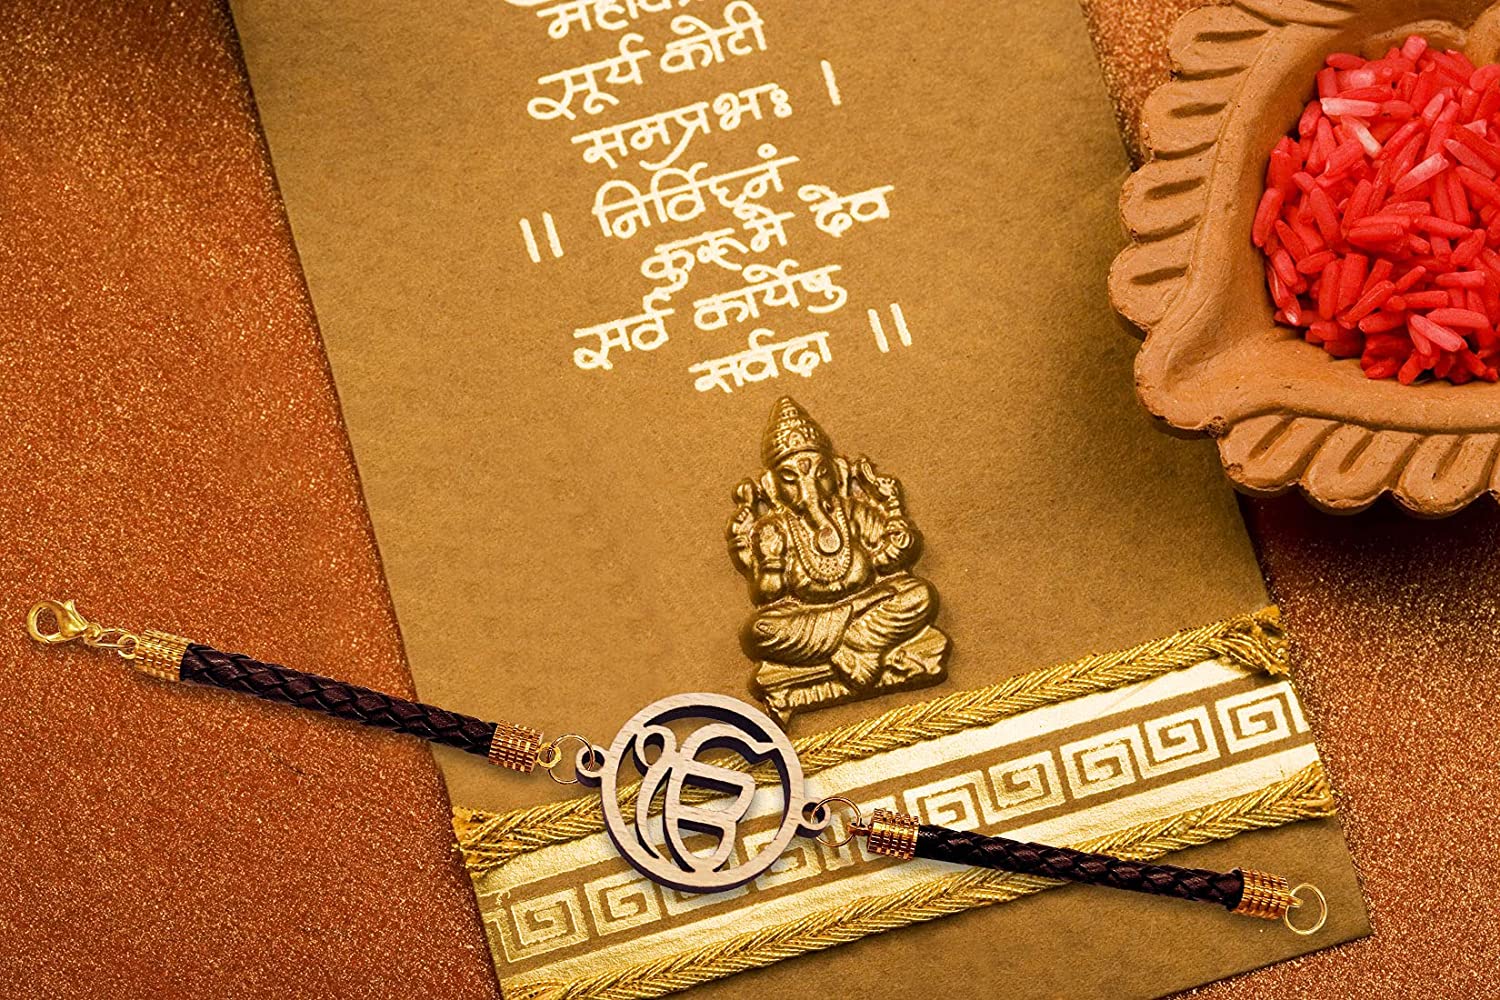 सूर्य कोटी
समप्रभः ।
॥ निर्विघ्नं
कुरूमे देव
सर्व कार्येषु
सर्वदा ॥
ੴ